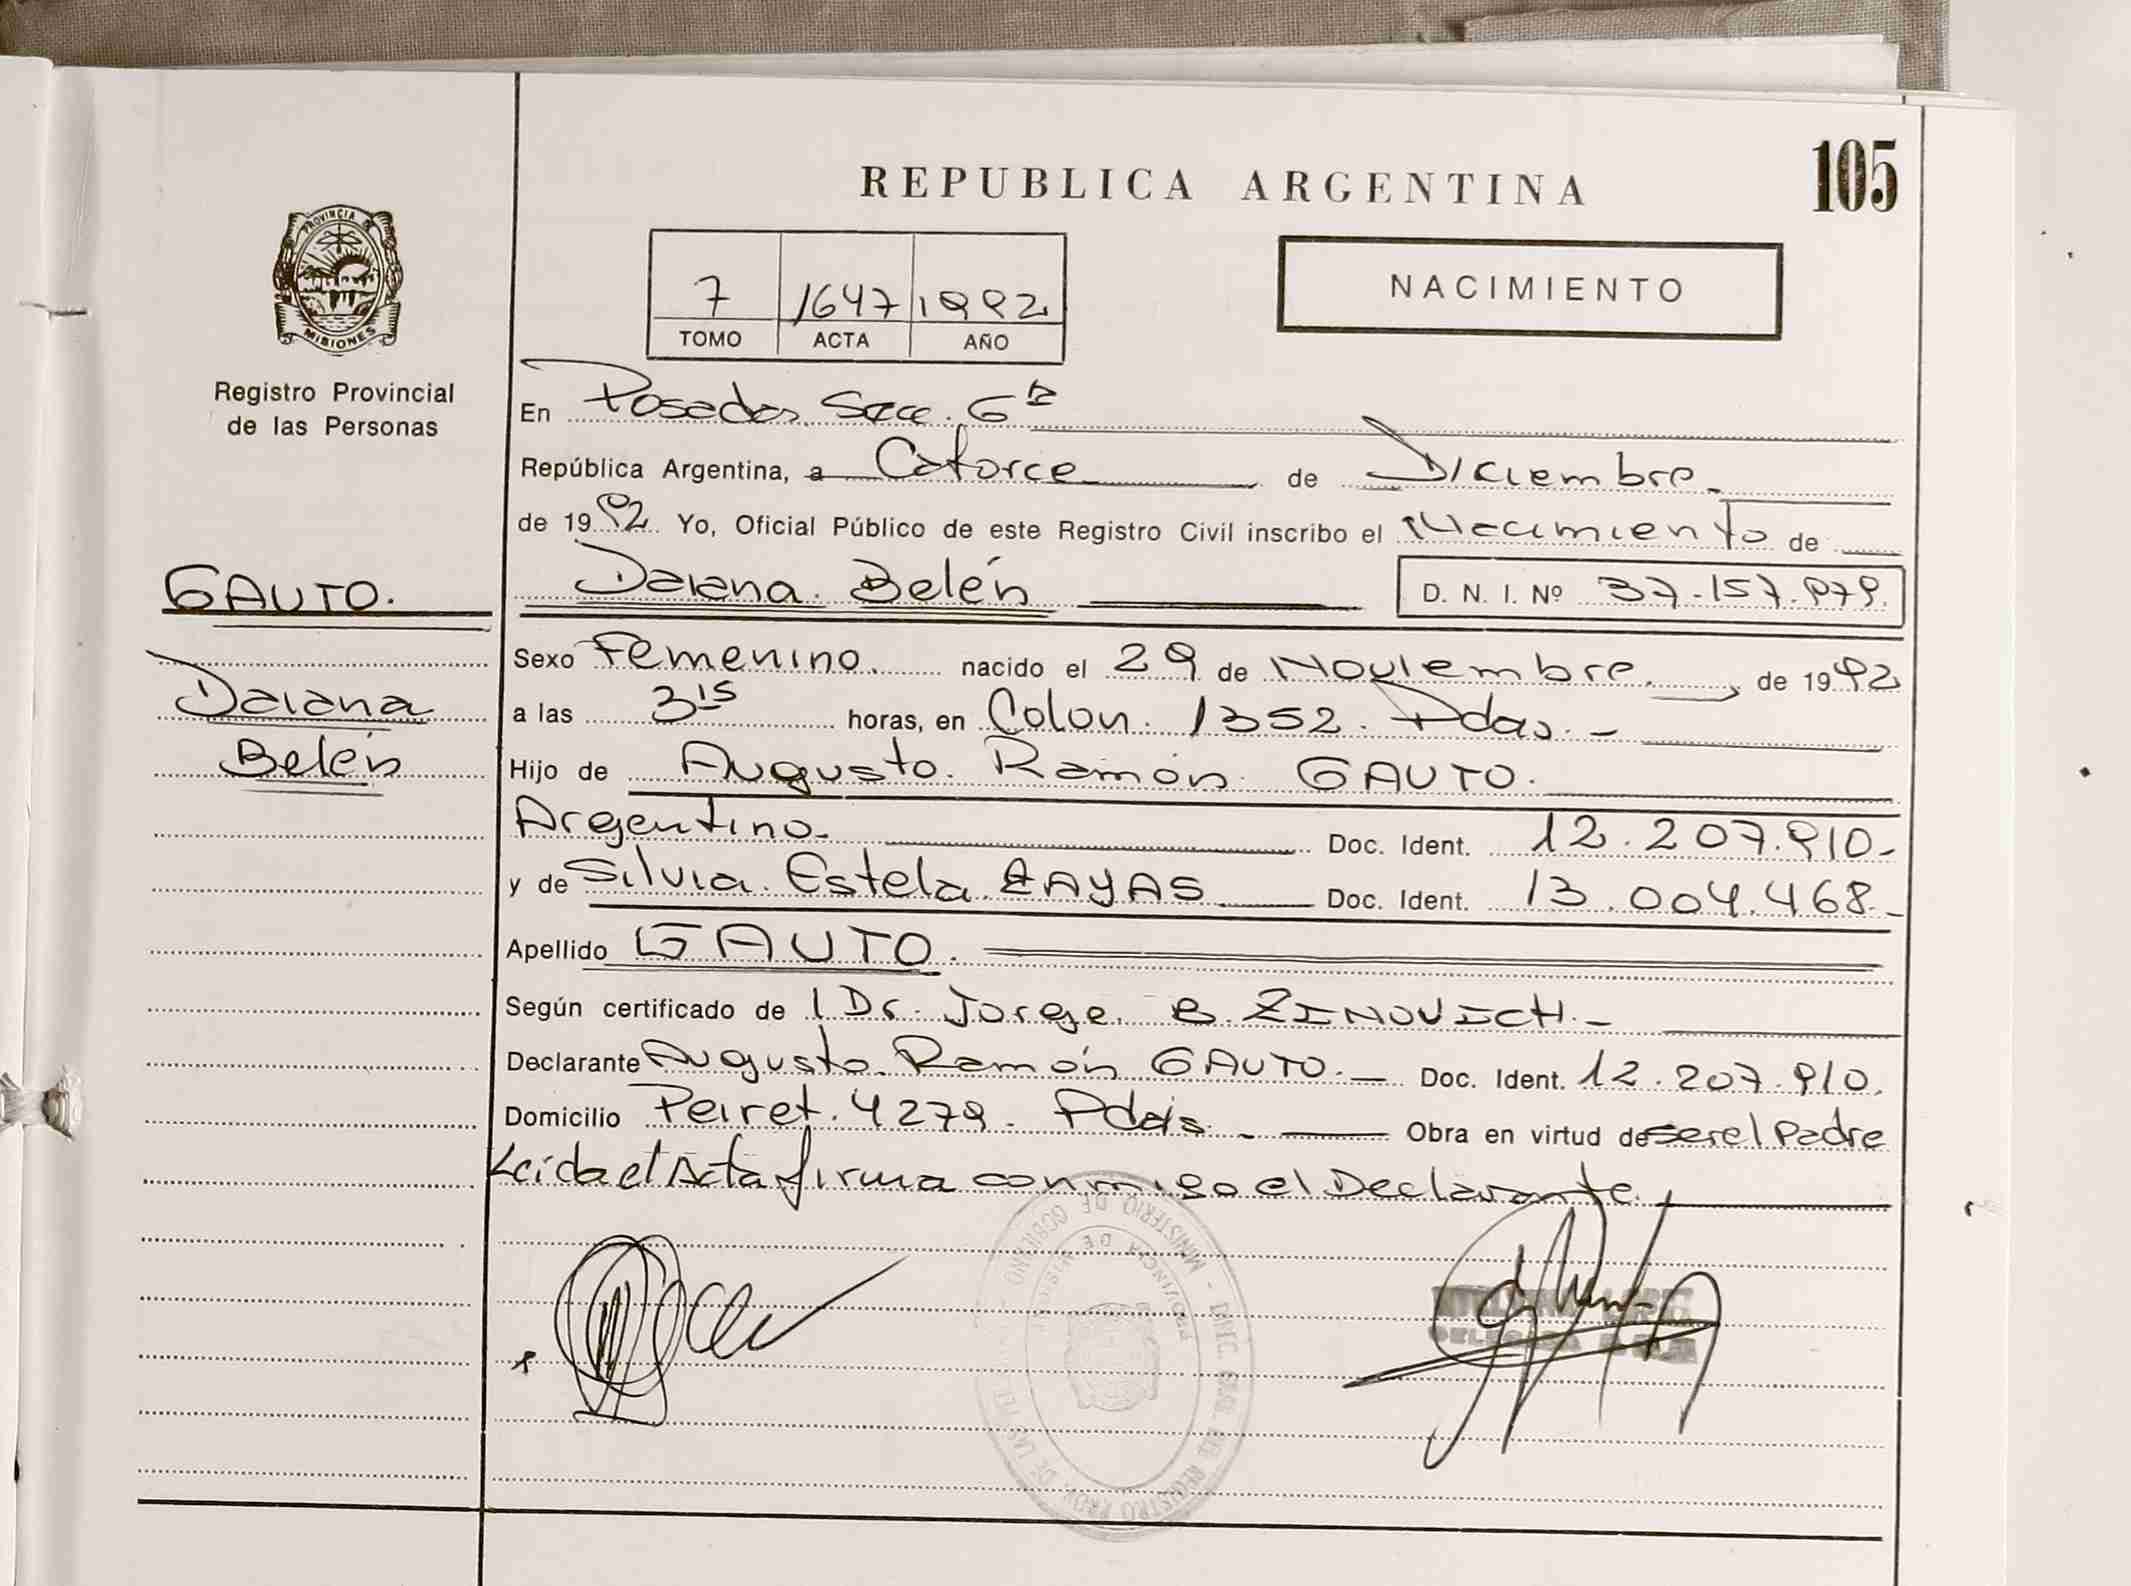 REPUBLICA ARGENTINA
105
PROVINCIA DE
MISIONES
Registro Provincial
de las Personas
7 1647 1992
TOMO ACTA AÑO
NACIMIENTO
En Posadas Secc. 6ª
República Argentina, a Catorce de Diciembre.
de 1992. Yo, Oficial Público de este Registro Civil inscribo el Nacimiento de
GAUTO.
Daiana Belén
D. N. I. Nº 37.157.979.
Daiana. Belén
Sexo Femenino. nacido el 29 de Noviembre. de 1992
a las 3 15 horas, en Colon. 1352. Pdas. -
Hijo de Augusto. Ramón. GAUTO.
Argentino. Doc. Ident. 12.207.910.-
y de Silvia. Estela. ZAYAS Doc. Ident. 13.004.468.-
Apellido GAUTO.
Según certificado de l Dr. Jorge. B. ZINOVICH. -
Declarante Augusto. Ramón GAUTO. - Doc. Ident. 12.207.910.
Domicilio Peiret. 4279. Pdas. - Obra en virtud de ser el Padre
Leida el Acta firma conmigo el Declarante.
MINISTERIO DE GOBIERNO - DIREC. GRAL. DEL REGISTRO PROV. DE LAS
PROVINCIA DE MISIONES